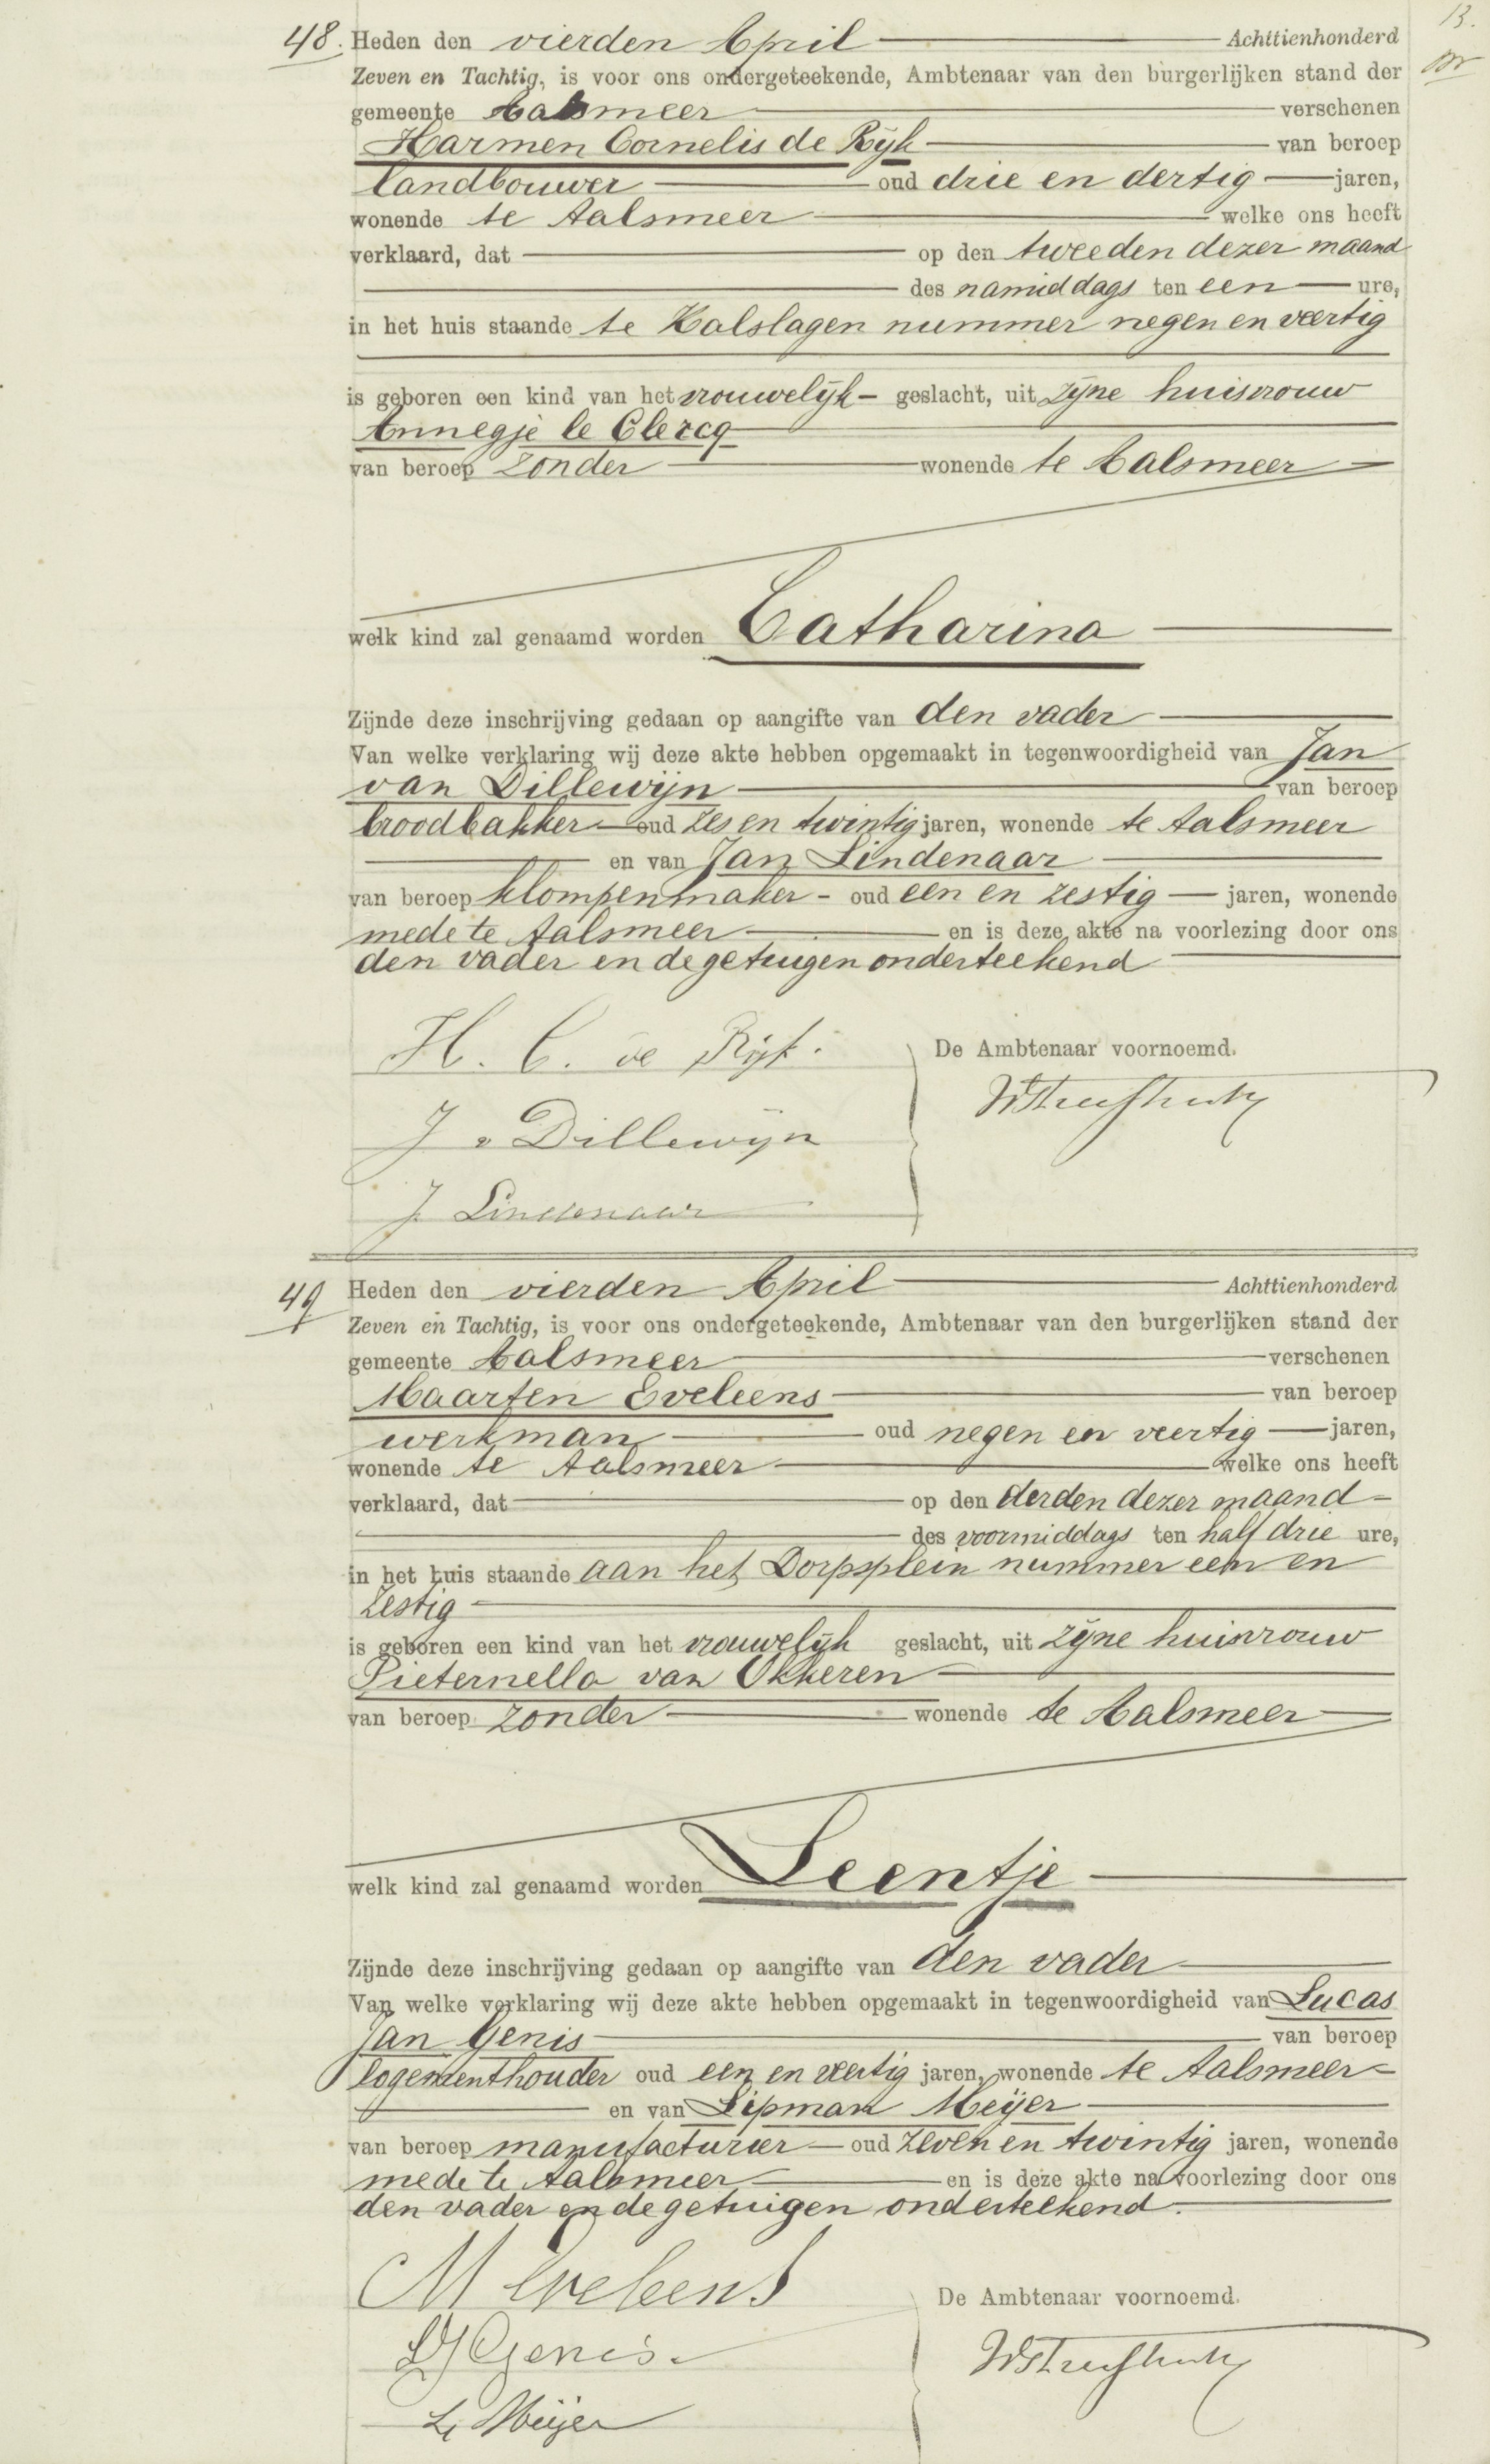 13.
48. Heden den vierden April Achttienhonderd
Zeven en Tachtig, is voor ons ondergeteekende, Ambtenaar van den burgerlijken stand der
gemeente Aalsmeer verschenen
Harmen Cornelis de Rijk van beroep
landbouwer oud drie en dertig jaren,
wonende te Aalsmeer welke ons heeft
verklaard, dat op den tweeden dezer maand
des namiddags ten een ure,
in het huis staande te Kalslagen nummer negen en veertig
is geboren een kind van het vrouwelijk geslacht, uit zijne huisvrouw
Annegje le Clercq
van beroep zonder wonende te Aalsmeer
welk kind zal genaamd worden Catharina
Zijnde deze inschrijving gedaan op aangifte van den vader
Van welke verklaring wij deze akte hebben opgemaakt in tegenwoordigheid van Jan
van Dillewijn van beroep
broodbakker oud zes en twintig jaren, wonende te Aalsmeer
en van Jan Lindenaar
van beroep klompenmaker - oud een en zestig jaren, wonende
mede te Aalsmeer en is deze akte na voorlezing door ons
den vader en de getuigen onderteekend
H. C. de Rijk.
De Ambtenaar voornoemd.
J v Dillewijn
J. Lindenaar
49 Heden den vierden April Achttienhonderd
Zeven en Tachtig, is voor ons ondergeteekende, Ambtenaar van den burgerlijken stand der
gemeente Aalsmeer verschenen
Maarten Eveleens van beroep
werkman oud negen en veertig jaren,
wonende te Aalsmeer welke ons heeft
verklaard, dat op den derden dezer maand
des voormiddags ten half drie ure,
in het huis staande aan het Dorpsplein nummer een en
zestig
is geboren een kind van het vrouwelijk geslacht, uit zijne huisvrouw
Pieternella van Okkeren
van beroep zonder wonende te Aalsmeer
welk kind zal genaamd worden Leentje
Zijnde deze inschrijving gedaan op aangifte van den vader
Van welke verklaring wij deze akte hebben opgemaakt in tegenwoordigheid van Lucas
Jan Genis van beroep
logementhouder oud een en veertig jaren, wonende te Aalsmeer
en van Lipman Meijer
van beroep manufacturier oud zeven en twintig jaren, wonende
mede te Aalsmeer en is deze akte na voorlezing door ons
den vader en de getuigen onderteekend.
M Eveleens
De Ambtenaar voornoemd.
LJ Genis.
L. Meijer